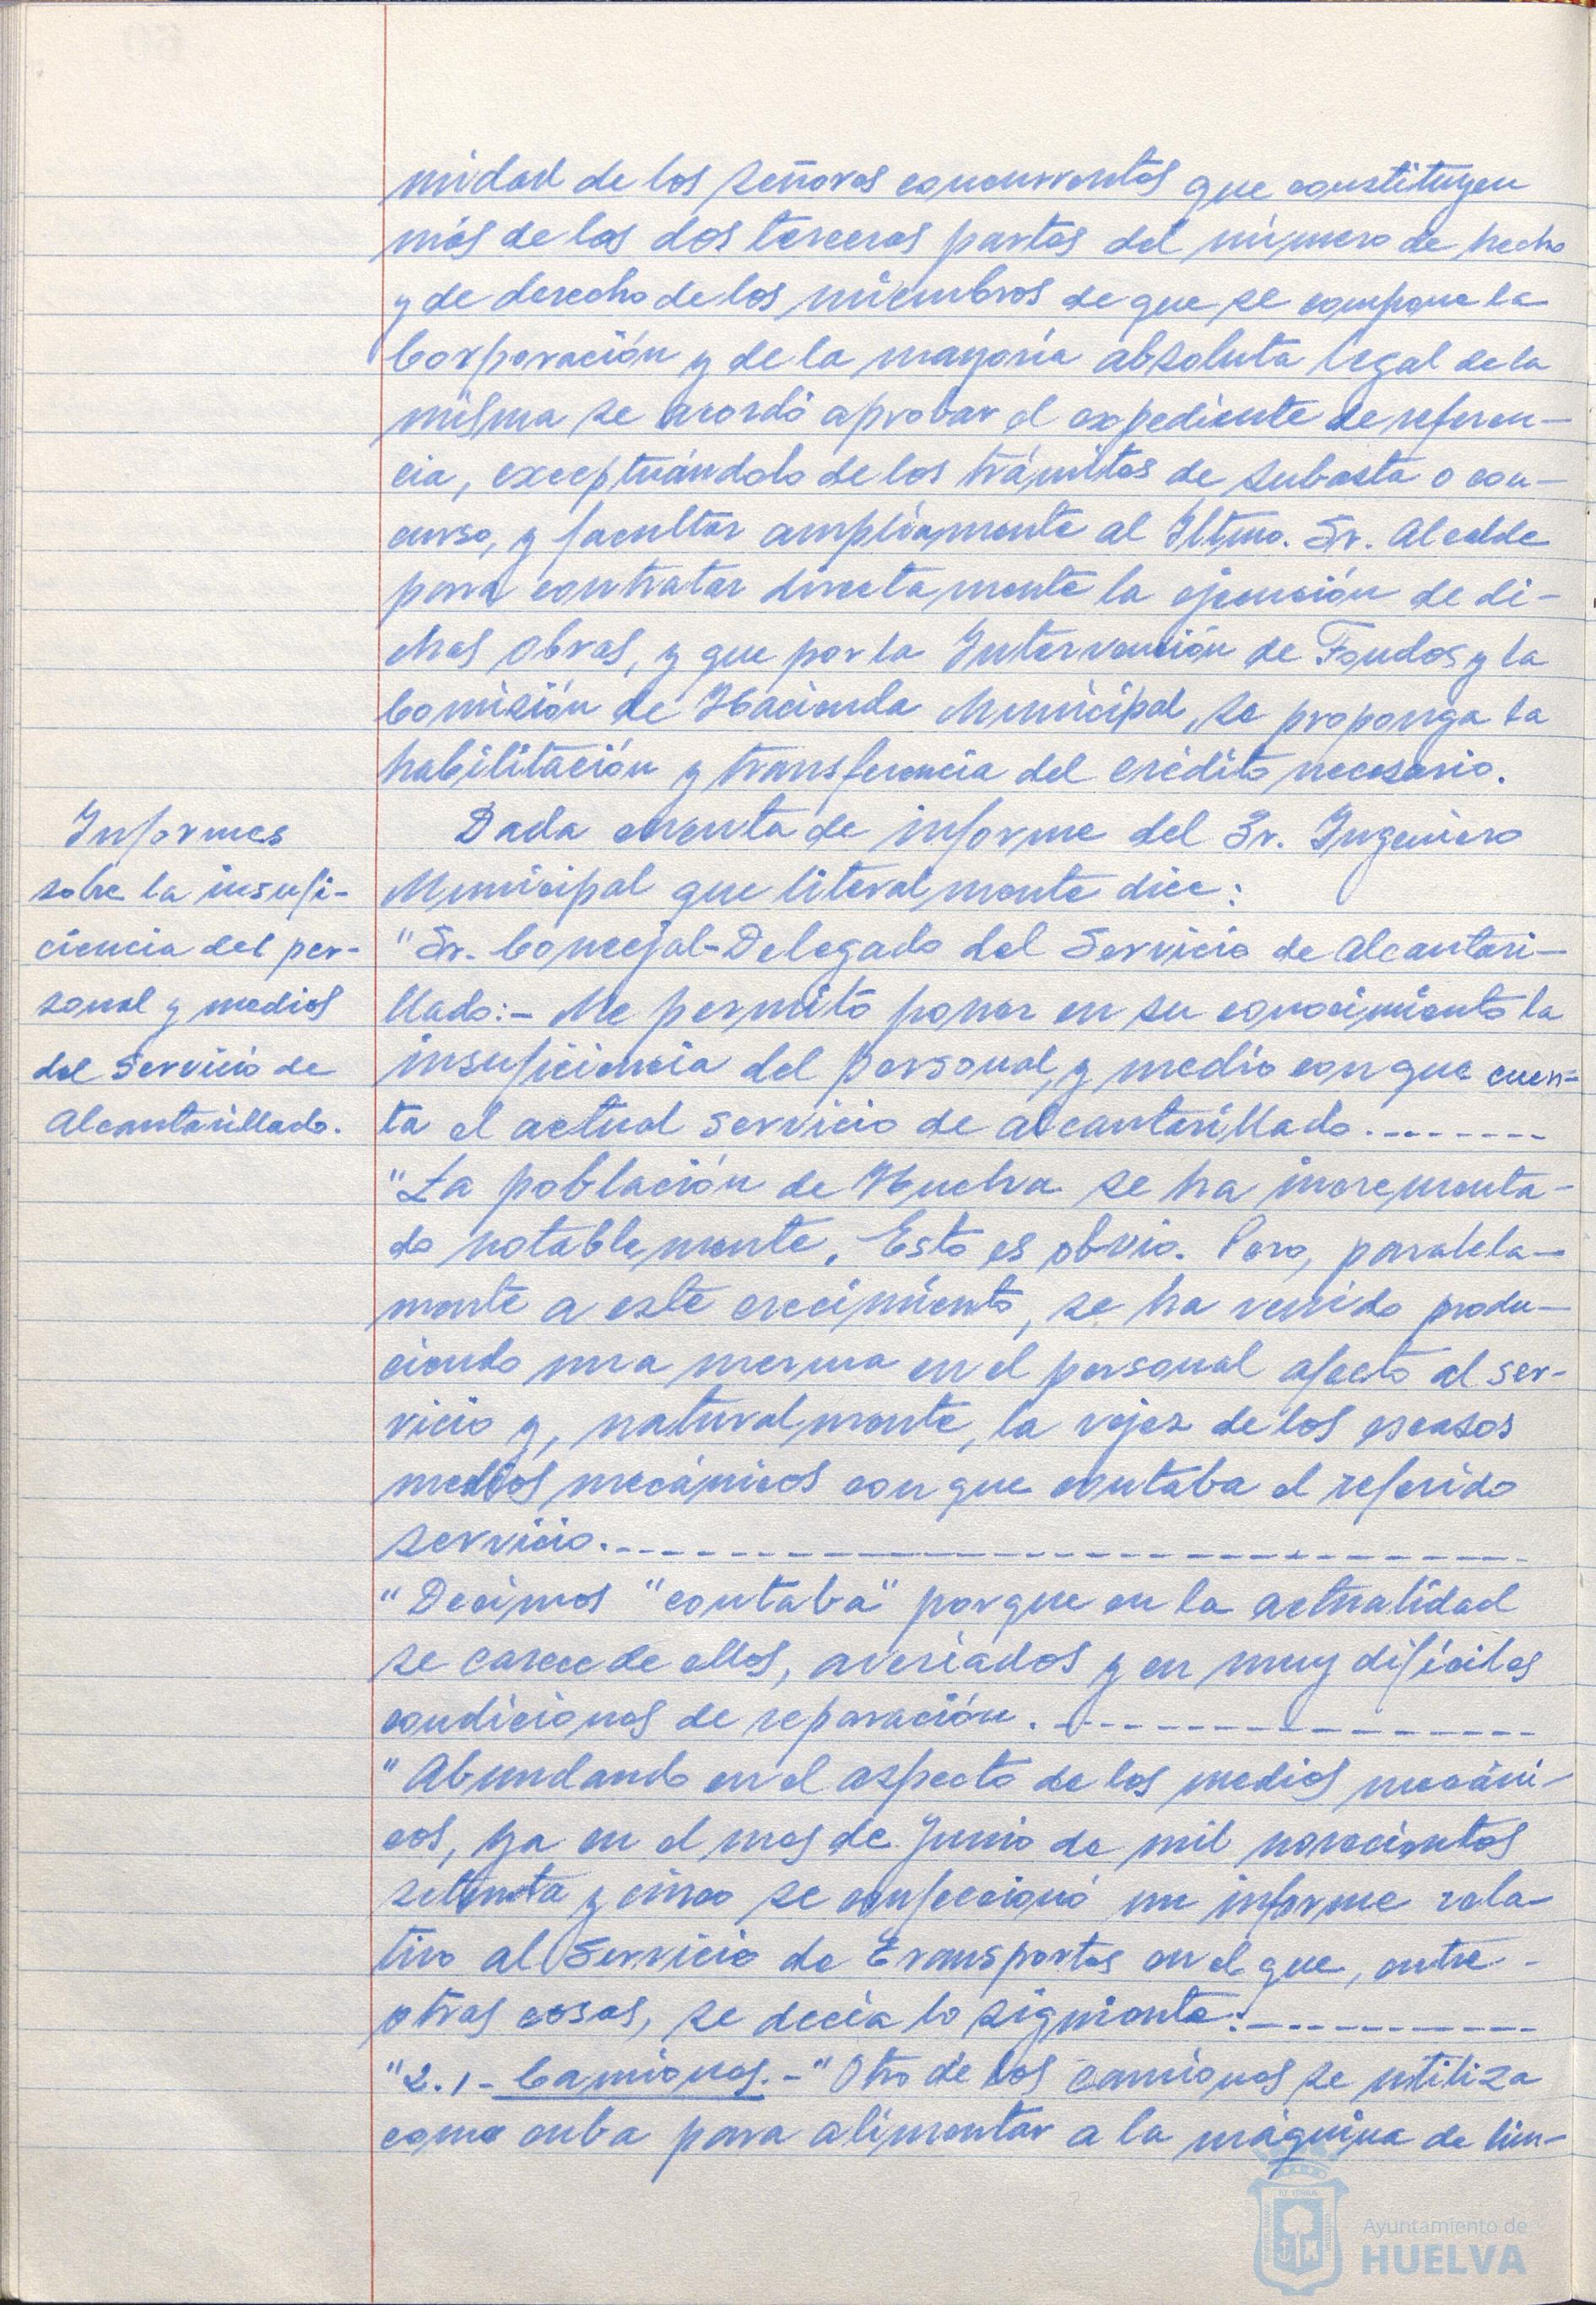 nidad de los señores concurrentes que constituyen
más de las dos terceras partes del número de hecho
y de derecho de los miembros de que se compone la
Corporación y de la mayoría absoluta legal de la
misma se acordó aprobar el expediente de referen-
cia, exceptuándolo de los trámites de subasta o con-
curso, y facultar ampliamente al Iltmo. Sr. Alcalde
para contratar directamente la ejecución de di-
chas obras, y que por la Intervención de Fondos y la
Comisión de Hacienda Municipal, se proponga la
habilitación y transferencia del crédito necesario.
Informes
sobre la insufi-
ciencia del per-
sonal y medios
del Servicio de
Alcantarillado.
Dada cuenta de informe del Sr. Ingeniero
Municipal que literalmente dice:
"Sr. Concejal-Delegado del Servicio de Alcantari-
llado:- Me permito poner en su conocimiento la
insuficiencia del personal, y medio con que cuen-
ta el actual servicio de alcantarillado.--------
"La población de Huelva se ha incrementa-
do notablemente. Esto es obvio. Pero, paralela-
mente a este crecimiento, se ha venido produ-
ciendo una merma en el personal afecto al ser-
vicio y, naturalmente, la vejez de los escasos
medios mecánicos con que contaba el referido
servicio.------------------------
"Decimos "contaba" porque en la actualidad
se carece de ellos, averiados y en muy difíciles
condiciones de reparación.---------------
"Abundando en el aspecto de los medios mecáni-
cos, ya en el mes de Junio de mil novecientos
setenta y cinco se confeccionó un informe rela-
tivo al Servicio de Transportes en el que, entre-
otras cosas, se decía lo siguiente:----------
"2.1- Camiones.-"Otro de los camiones se utiliza
como cuba para alimentar a la máquina de lim-
Ayuntamiento de
HUELVA